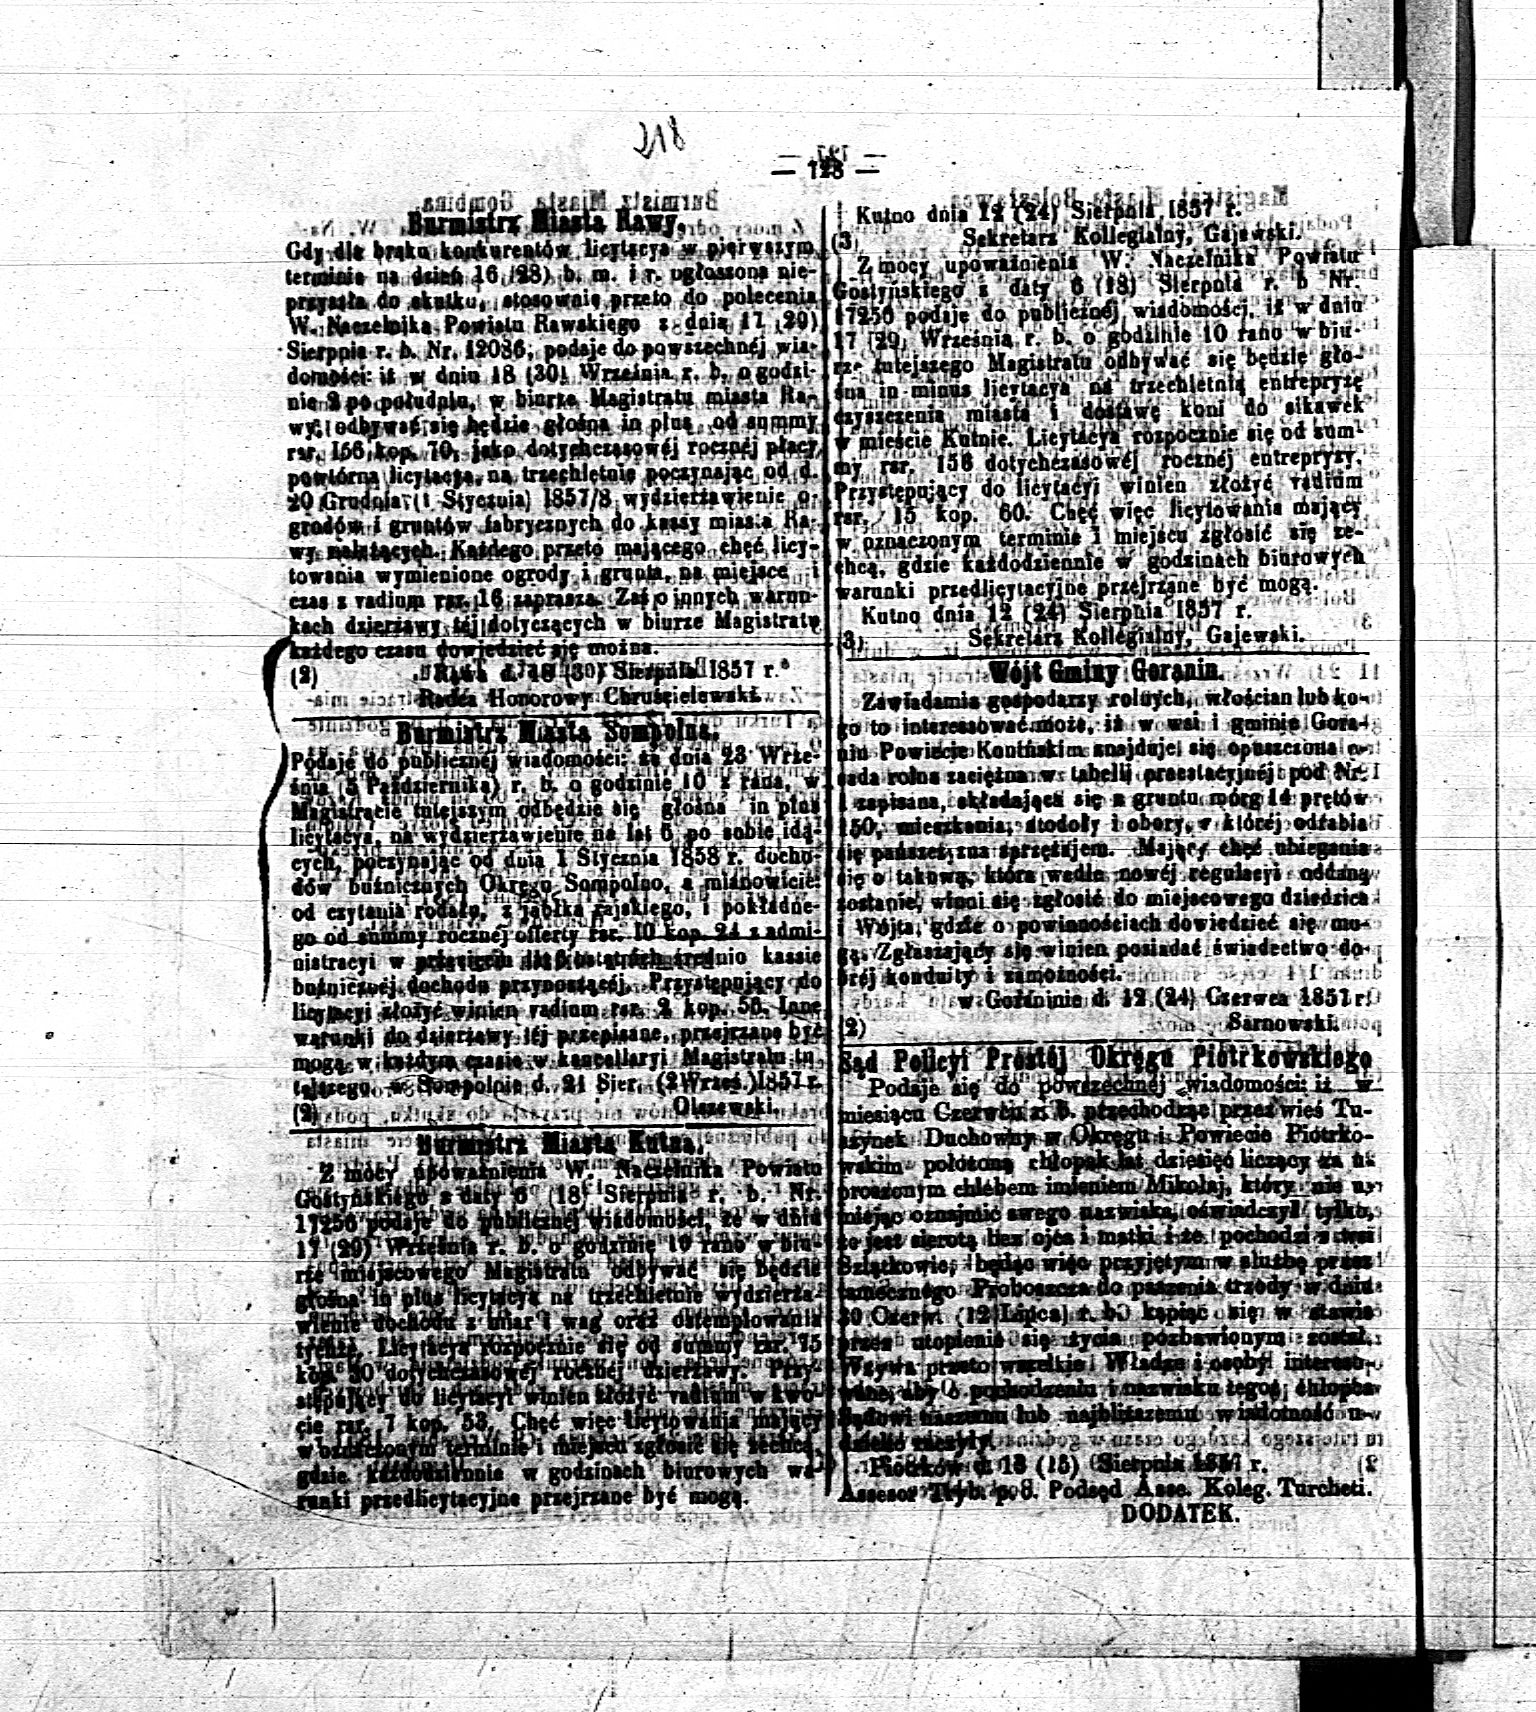 218
— 128 —
Burmistrz Miasta Rawy.
Gdy dla braku konkurentów licytacya w pierwszym
terminie na dzień 16 (28) b. m. i r. ogłoszona nie-
przyszła do skutku, stosownie przeto do polecenia
W. Naczelnika Powiatu Rawskiego z dnia 17 (29)
Sierpnia r. b. Nr. 12086, podaje do powszechnéj wia-
domości: iż w dniu 18 (30) Września r. b. o godzi-
nie 3 po południu, w biurze Magistratu miasta Ra-
wy, odbywać się będzie głośna in plus od summy
rsr. 156 kop. 70, jako dotychczasowéj rocznéj płacy
powtórna licytacya, na trzechletnie poczynając od d.
20 Grudnia (1 Stycznia) 1857/8 wydzierżawienie o-
grodów i gruntów fabrycznych do kassy miasta Ra-
wy należących. Każdego przeto mającego chęć licy-
towania wymienione ogrody i grunta, na miejsce i
czas z vadium rsr. 16 zaprasza. Zaś o innych warun-
kach dzierżawy téj dotyczących w biurze Magistratu
każdego czasu dowiedzieć się można.
(2) Rawa d. 18 (30) Sierpnia 1857 r.
Radca Honorowy Chruścielewski.
Burmistrz Miasta Sompolna.
Podaje do publicznéj wiadomości: że dnia 23 Wrze-
śnia (5 Października) r. b. o godzinie 10 z rana, w
Magistracie tutejszym odbędzie się głośna in plus
licytacya, na wydzierżawienie na lat 6 po sobie idą-
cych, poczynając od dnia 1 Stycznia 1858 r. docho-
dów bużnicznych Okręgu Sompolno, a mianowicie:
od czytania rodału, z jabłka rajskiego, i pokładne-
go od summy rocznéj offerty rsr. 10 kop. 24 z admi-
nistracyi w przecięciu lat 6 ostatnich średnio kassie
bużnicznéj dochodu przynoszącéj. Przystępujący do
licytacyi złożyć winien vadium rsr. 2 kop. 56. Inne
warunki do dzierżawy téj przepisane, przejrzane być
mogą w każdym czasie w kancellaryi Magistratu tu-
tejszego. w Sompolnie d. 21 Sier. (2 Wrześ.) 1857 r.
(2) Olszewski.
Burmistrz Miasta Kutna.
Z mocy upoważnienia W. Naczelnika Powiatu
Gostyńskiego z daty 6 (18) Sierpnia r. b. Nr.
17256 podaje do publicznéj wiadomości, że w dniu
17 (29) Września r. b. o godzinie 10 rano w biu-
rze miejscowego Magistratu odbywać się będzie
głośna in plus licytacya na trzechletnie wydzierża-
wienie dochodu z miar i wag oraz ostemplowania
tychże. Licytacya rozpocznie się od summy rsr. 75
kop. 30 dotychczasowéj rocznéj dzierżawy. Przy-
stępujący do licytacyi winien złożyć vadium w kwo-
cie rsr. 7 kop. 53. Chęć więc licytowania mający
w oznaczonym terminie i miejscu zgłosić się zechcą,
gdzie każdodziennie w godzinach biurowych wa-
runki przedlicytacyjne przejrzane być mogą.
Kutno dnia 12 (24) Sierpnia 1857 r.
(3) Sekretarz Kollegialny, Gajewski.
Z mocy upoważnienia W. Naczelnika Powiatu
Gostyńskiego z daty 6 (18) Sierpnia r. b Nr.
17256 podaje do publicznéj wiadomości, iż w dniu
17 (29) Września r. b. o godzinie 10 rano w biu-
rze tutejszego Magistratu odbywać się będzie gło-
śna in minus licytacya na trzechletnią entrepryzę
czyszczenia miasta i dostawę koni do sikawek
w mieście Kutnie. Licytacya rozpocznie się od sum-
my rsr. 156 dotychczasowéj rocznéj entrepryzy.
Przystępujący do licytacyi winien złożyć vadium
rsr. 15 kop. 60. Chęć więc licytowania mający
w oznaczonym terminie i miejscu zgłosić się ze-
chcą, gdzie każdodziennie w godzinach biurowych
warunki przedlicytacyjne przejrzane być mogą.
Kutno dnia 12 (24) Sierpnia 1857 r.
(3) Sekretarz Kollegialny, Gajewski.
Wójt Gminy Goranin.
Zawiadamia gospodarzy rolnych, włościan lub ko-
go to interessować może, iż w wsi i gminie Gora-
nin Powiecie Konińskim znajduje się opuszczona o-
sada rolna zaciężna w tabelli praestacyjnéj pod Nr.
1 zapisana, składająca się z gruntu mórg 14 prętów
150, mieszkania, stodoły i obory, z któréj odrabia
się pańszczyzna sprzężajem. Mający chęć ubiegania
się o takową, która wedle nowéj regulacyi oddaną
zostanie, winni się zgłosić do miejscowego dziedzica
i Wójta, gdzie o powinnościach dowiedzieć się mo-
gą. Zgłaszający się winien posiadać świadectwo do-
bréj konduity i zamożności.
w Goraninie d. 12 (24) Czerwca 1857 r.
(2) Sarnowski.
Sąd Policyi Prostéj Okręgu Piotrkowskiego
Podaje się do powszechnéj wiadomości: iż w
miesiącu Czerwcu r. b. przechodząc przez wieś Tu-
szynek Duchowny w Okręgu i Powiecie Piotrko-
wskim położoną chłopak lat dziesięć liczący za u-
proszonym chlebem imieniem Mikołaj, który nie u-
miejąc oznajmić swego nazwiska, oświadczył tylko,
że jest sierotą bez ojca i matki i że pochodzi z wsi
Szlątkowic, będąc więc przyjętym w służbę przez
tamecznego Proboszcza do paszenia trzody w dniu
30 Czerw. (12 Lipca) r. b. kąpiąc się w stawie
przez utopienie się życia pozbawionym został.
Wzywa przeto wszelkie Władze i osoby interesso-
wane, aby o pochodzeniu i nazwisku tegoż chłopca
Sądowi naszemu lub najbliższemu wiadomość u-
dzielić raczyły.
Piotrków d. 13 (15) Sierpnia 1857 r.
Assesor Tryb. p. o. Podsęd Asse. Koleg. Turcheti.
DODATEK.